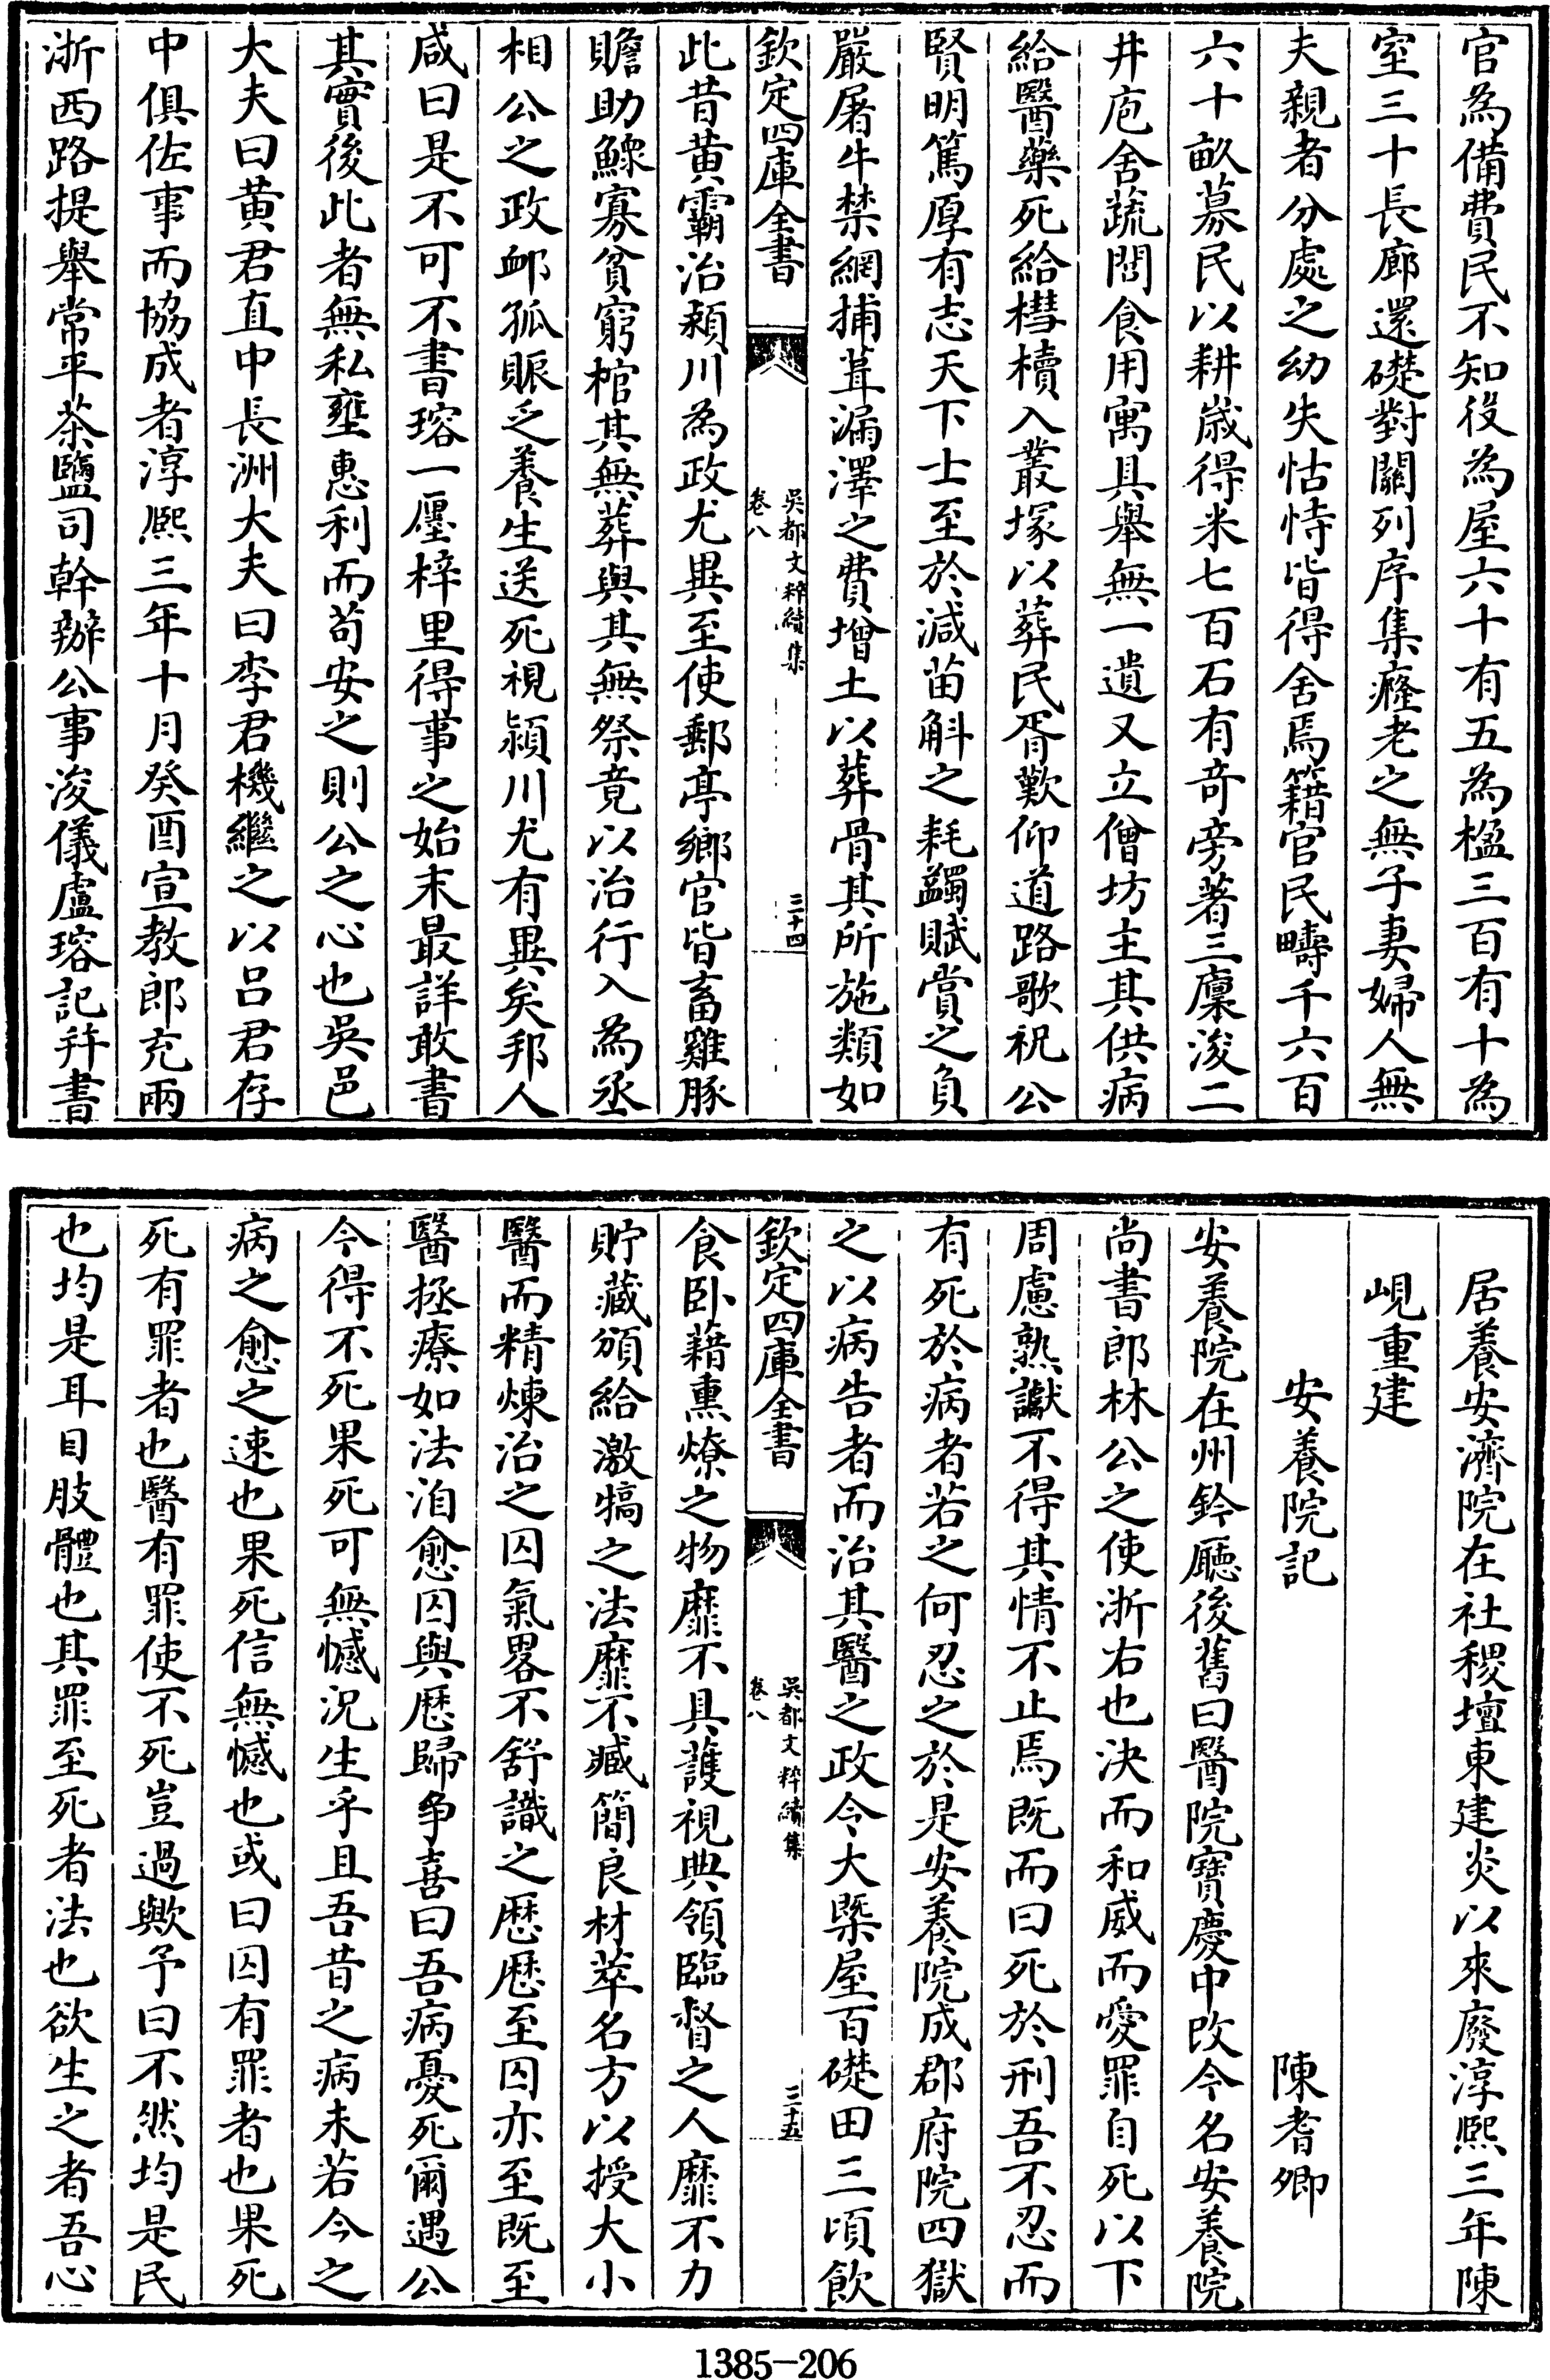 官為備費民不知役為屋六十有五為楹三百有十為
室三十長廊還礎對闢列序集癃老之無子妻婦人無
夫親者分處之幼失怙恃皆得舍焉籍官民疇千六百
六十畝募民以耕歳得米七百石有奇旁著三廩浚二
井庖舍蔬閣食用寓具舉無一遺又立僧坊主其供病
給醫藥死給槥櫝入叢塚以葬民胥歎仰道路歌祝公
賢明篤厚有志天下士至於減苗斛之耗蠲賦賞之負
嚴屠牛禁網捕葺漏澤之費增土以葬骨其所施類如
欽定四庫全書
吳都文粹續集
卷八
三十四
此昔黄霸治穎川為政尤異至使郵亭鄉官皆畜雞豚
贍助鰥寡貧窮棺其無葬與其無祭竟以治行入為丞
相公之政䘏孤賑乏養生送死視潁川尤有異矣邦人
咸曰是不可不書瑢一廛梓里得事之始末最詳敢書
其實後此者無私壅惠利而苟安之則公之心也吳邑
大夫曰黄君直中長洲大夫曰李君機繼之以呂君存
中俱佐事而協成者淳熙三年十月癸酉宣教郎充兩
浙西路提舉常平茶鹽司幹辦公事浚儀盧瑢記并書
居養安濟院在社稷壇東建炎以來廢淳熙三年陳
峴重建
安養院記 陳耆卿
安養院在州鈐廳後舊曰醫院寶慶中改今名安養院
尚書郎林公之使浙右也決而和威而愛罪自死以下
周慮熟讞不得其情不止焉既而曰死於刑吾不忍而
有死於病者若之何忍之於是安養院成郡府院四獄
之以病告者而治其醫之政令大槩屋百礎田三頃飲
欽定四庫全書
吳都文粹續集
卷八
三十五
食卧藉熏燎之物靡不具護視典領臨督之人靡不力
貯藏頒給激犒之法靡不臧簡良材萃名方以授大小
醫而精煉治之囚氣畧不舒識之歴歴至囚亦至既至
醫拯療如法洎愈囚與歴歸争喜曰吾病憂死爾遇公
今得不死果死可無憾況生乎且吾昔之病未若今之
病之愈之速也果死信無憾也或曰囚有罪者也果死
死有罪者也醫有罪使不死豈過歟予曰不然均是民
也均是耳目肢體也其罪至死者法也欲生之者吾心
1385-206